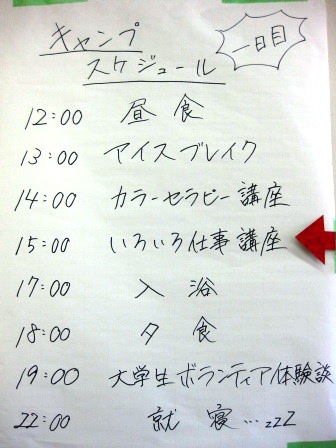 キャンプ
スケジュール
一日目
12:00 昼食
13:00 アイスブレイク
14:00 カラーセラピー講座
15:00 いろいろ仕事講座
17:00 入浴
18:00 夕食
19:00 大学生ボランティア体験談
22:00 就寝…zzZ